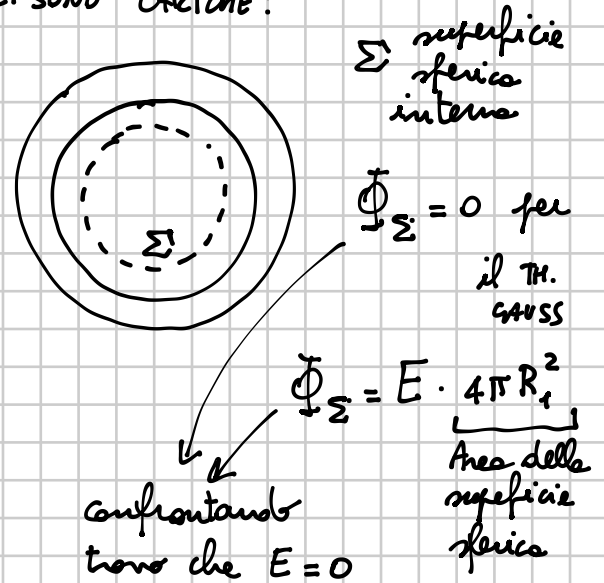 CI SONO CARICHE.
Σ superficie
sferica
interna
Σ
Φ_Σ = 0 per
il TH.
GAUSS
Φ_Σ = E · 4πR₁²
Area della
supeficie
sferica
confrontando
trovo che E = 0